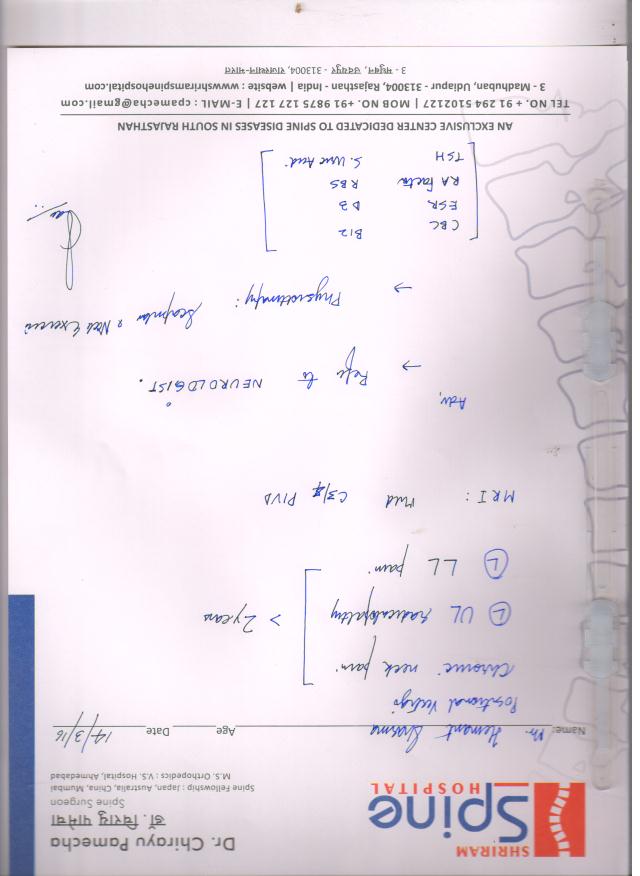 SHRIRAM
Spine
HOSPITAL
Dr. Chirayu Pamecha
डॉ. चिरायु पामेचा
Spine Surgeon
Spine Fellowship : Japan, Australia, China, Mumbai
M.S. Orthopedics : V.S. Hospital, Ahmedabad
Name: Mr. Hemant Sharma Age Date 14/3/16
Positional Vertigo
Chronic neck pain
(L) UL radiculopathy > 2 years
(L) LL pain
MRI : mild C3/4 PIVD
Adv,
→ Refer to NEUROLOGIST.
→ Physiotherapy : Scapular & Neck Exercises
CBC B12
ESR D3
RA Factor RBS
TSH S. Uric Acid
AN EXCLUSIVE CENTER DEDICATED TO SPINE DISEASES IN SOUTH RAJASTHAN
TEL NO. + 91 294 5102127 | MOB NO. +91 9875 127 127 | E-MAIL : cpamecha@gmail.com
3 - Madhuban, Udaipur - 313004, Rajasthan - India | website : wwwshriramspinehospital.com
3 - मधुबन, उदयपुर - 313004, राजस्थान-भारत